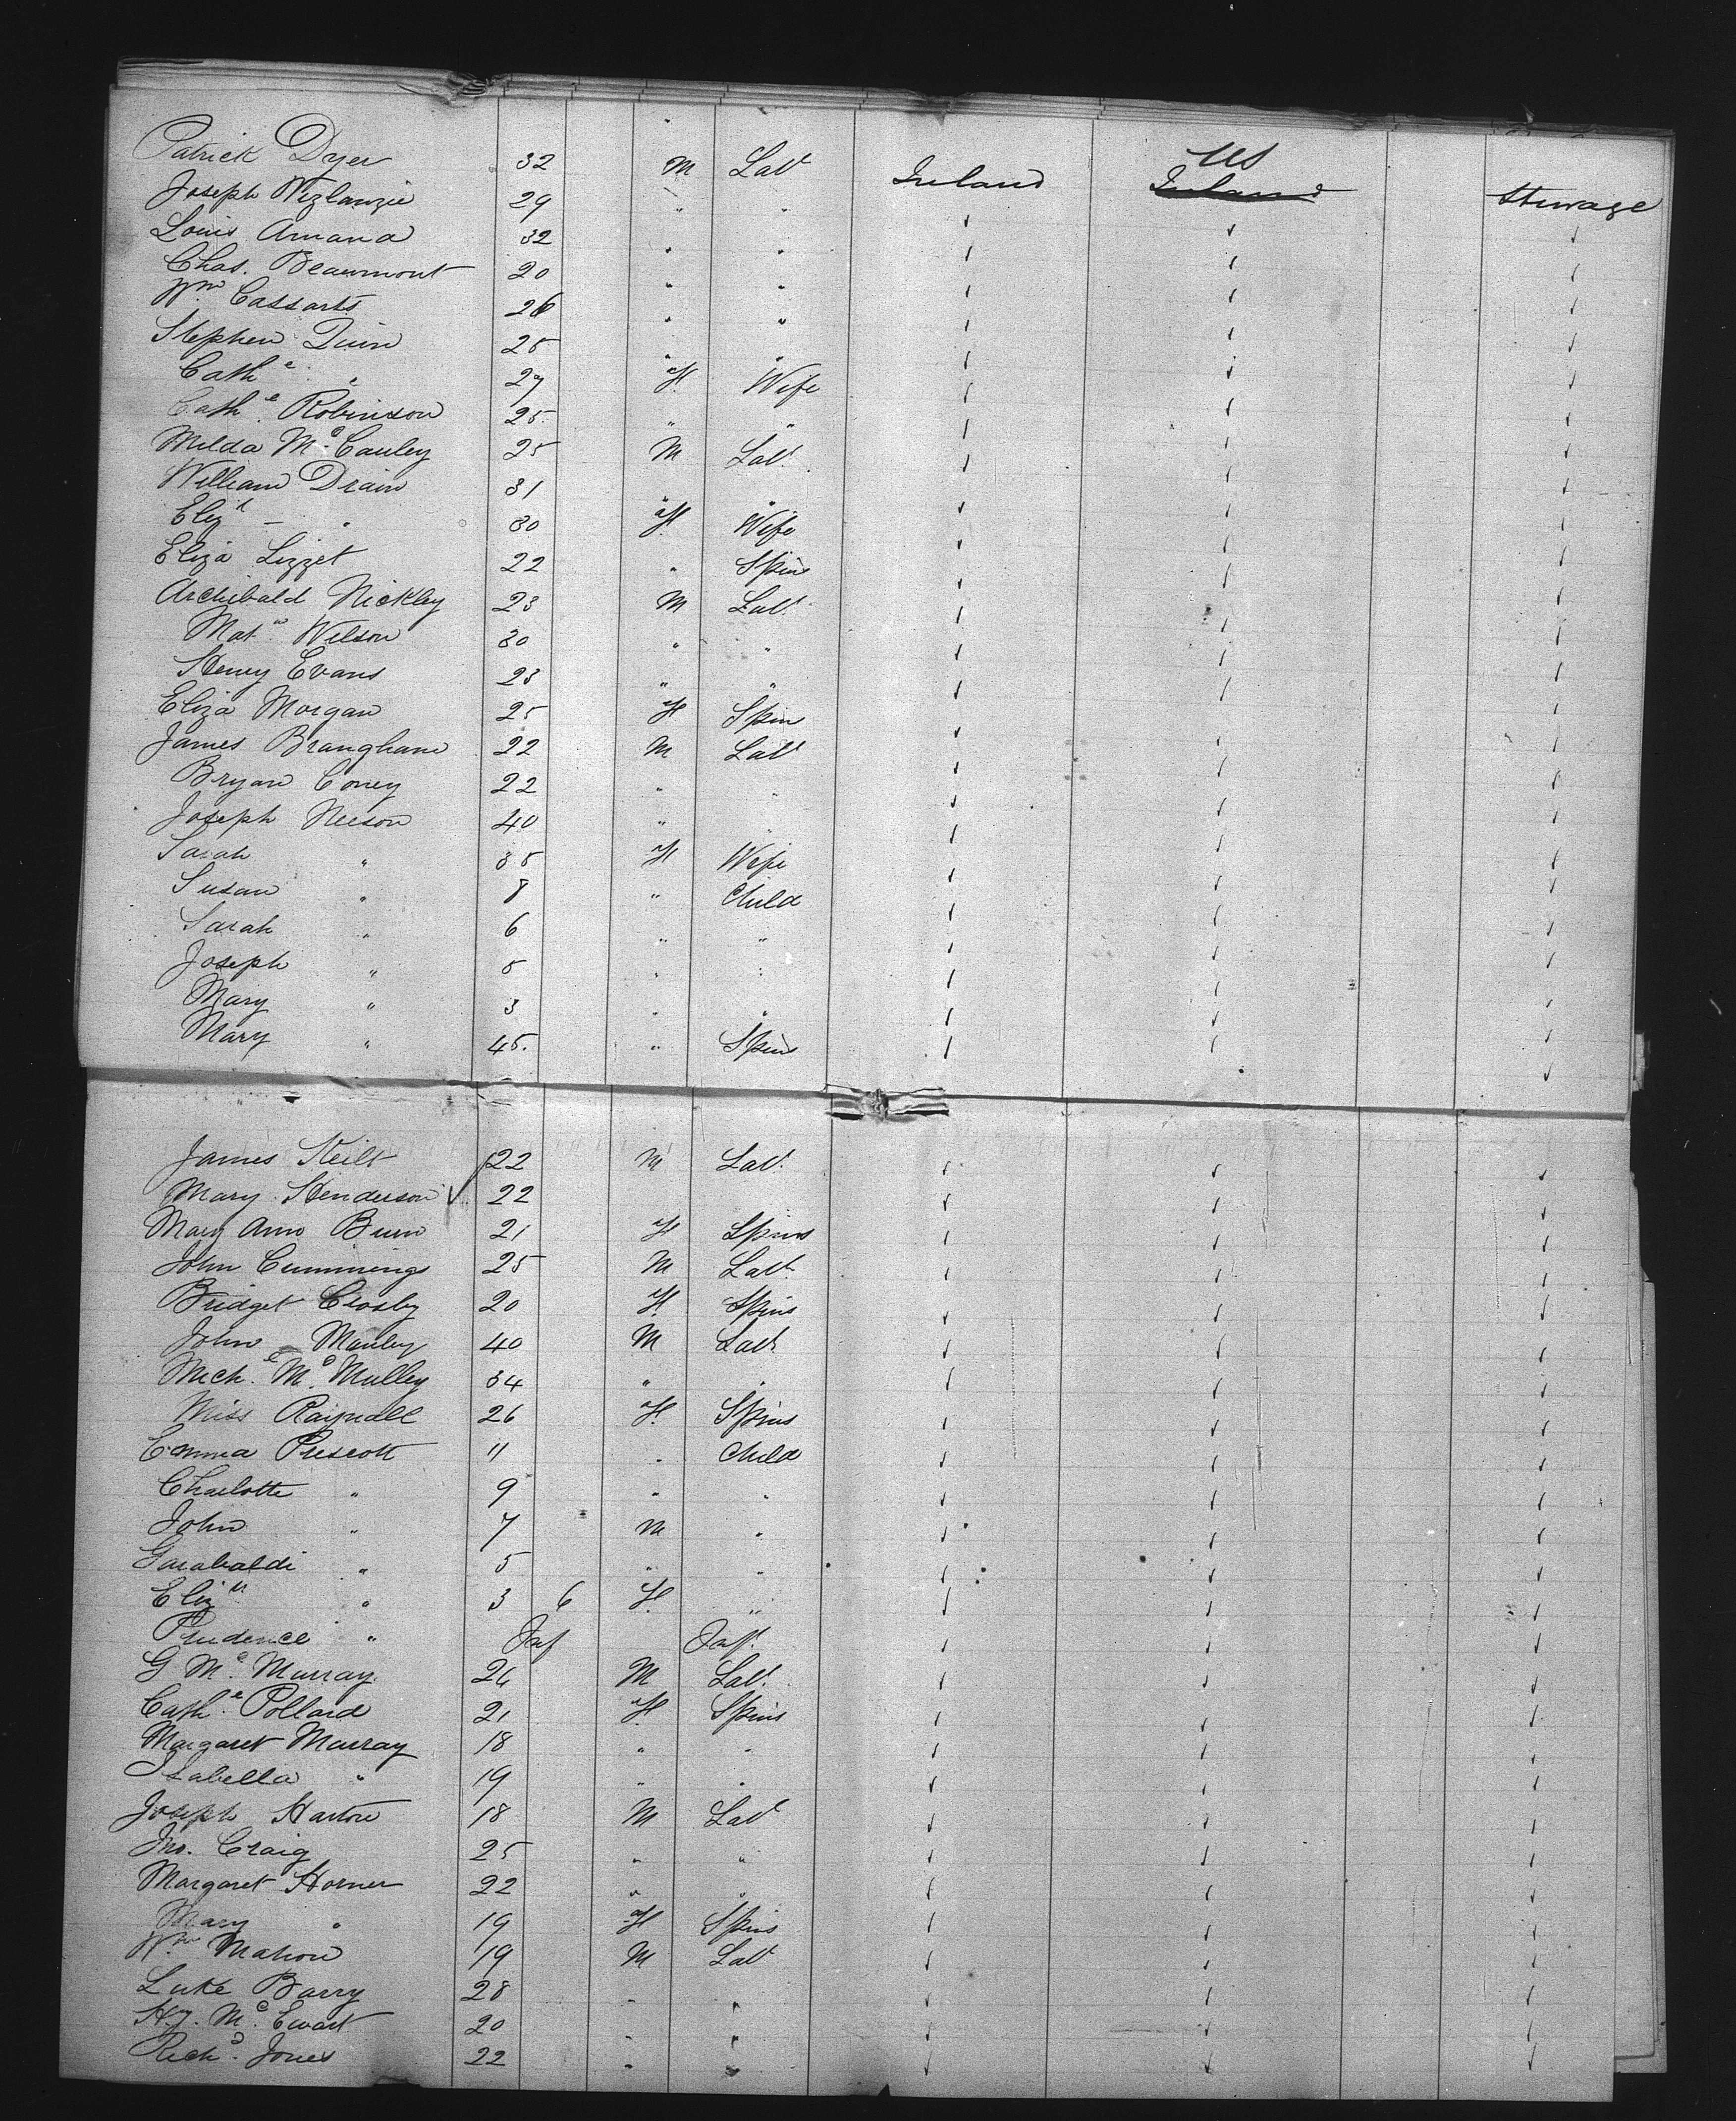 Patrick Dyer 32 M Lab Ireland US Ireland Steerage
Joseph 29 " "
Louis Amana 32 " "
Chas. Beaumont 20 " "
Wm Cassarts 26 " "
Stephen Quin 25 " "
Cathe " 27 F Wife
Cathe Robinson 25 " "
Milda McCauley 25 M Lab
William Drain 31 " "
Elizh - " 30 F Wife
Eliza Lizzet 22 " Spins
Archibald Nickley 23 M Lab
Matw Wilson 30 " "
Henry Evans 23 " "
Eliza Morgan 25 F Spins
James Branghan 22 M Lab
Bryan Coney 22 " "
Joseph Neeson 40 " "
Sarah " 35 F Wife
Susan " 8 " Child
Sarah " 6 " "
Joseph " 5 " "
Mary " 3 " "
Mary " 45 " Spins
James Neilt 22 M Lab
Mary Henderson 22
Mary Ann Burn 21 F Spins
John Cummings 25 M Lab
Bridget Crosby 20 F Spins
John Manley 40 M Lab
Mich. McMulley 34 " "
Miss 26 F Spins
Emma Prescott 11 " Child
Charlotte " 9 " "
John " 7 M "
Garabaldi " 5 " "
Elizh " 3 6 F "
Prudence " Inf Inft
G McMurray 26 M Lab
Cathe Pollard 21 F Spins
Margaret Murray 18 " "
Isabella " 19 " "
Joseph 18 M Lab
Jno. Craig 25 " "
Margaret Horner 22 " "
Mary " 19 F Spins
Wm Mahon 19 M Lab
Luke Barry 28 " "
Hy. McEwart 20 " "
Richd. Jones 22 " "